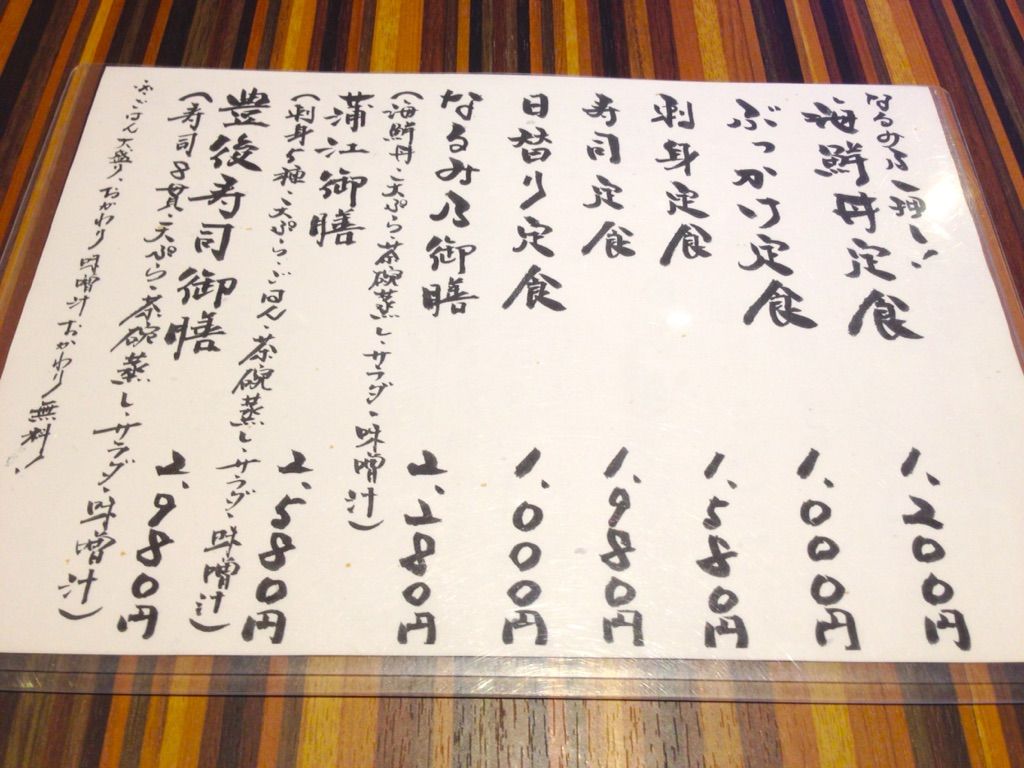 なるみ乃一押し!
海鮮丼定食 1,200円
ぶっかけ定食 1,000円
刺身定食 1,580円
寿司定食 1,980円
日替り定食 1,000円
なるみ乃御膳 2,280円
(海鮮丼・天ぷら・茶碗蒸し・サラダ・味噌汁)
蒲江御膳 2,580円
(刺身5種・天ぷら・ごはん・茶碗蒸し・サラダ・味噌汁)
豊後寿司御膳 2,980円
(寿司8貫・天ぷら・茶碗蒸し・サラダ・味噌汁)
ごはん大盛り、おかわり 味噌汁おかわり無料!